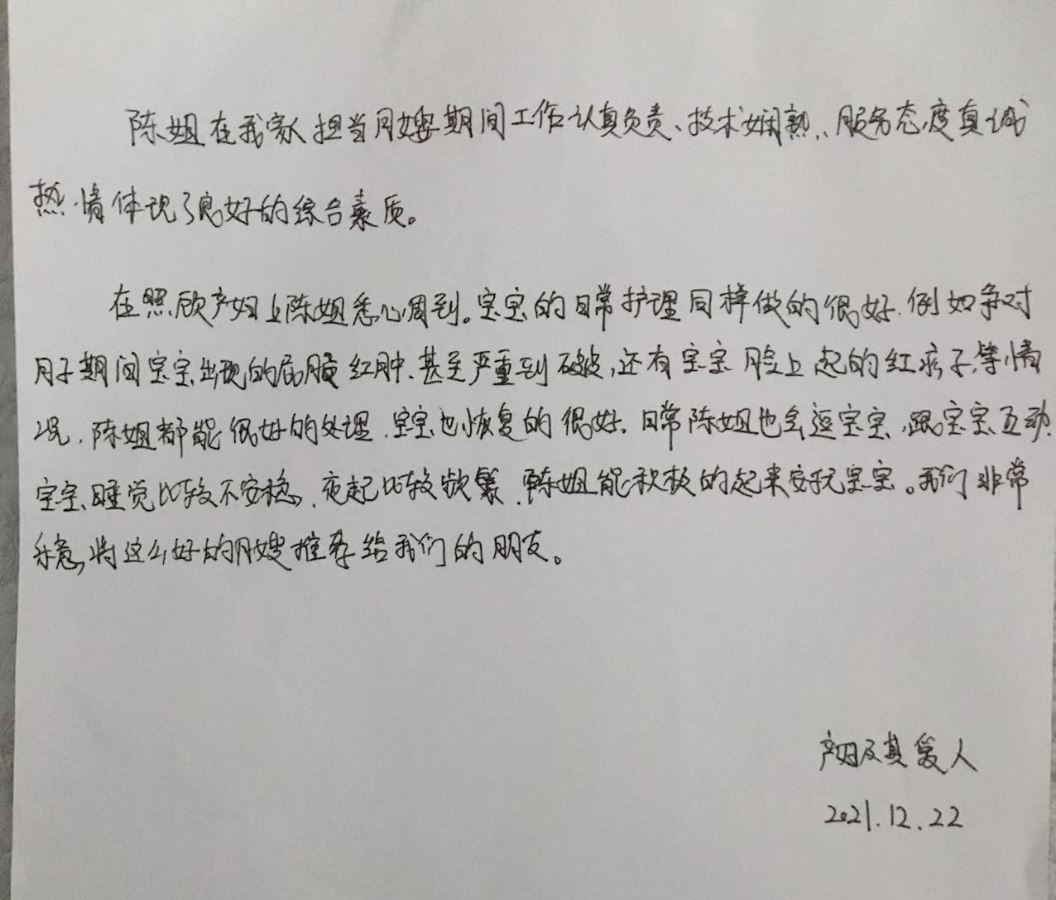 陈姐在我家担当月嫂期间工作认真负责、技术娴熟、服务态度真诚
热情体现了良好的综合素质。
在照顾产妇上陈姐悉心周到。宝宝的日常护理同样做的很好.例如针对
月子期间宝宝出现的屁股红肿.甚至严重到破皮,还有宝宝脸上起的红疹子等情
况,陈姐都能很好的处理,宝宝也恢复的很好.日常陈姐也会逗宝宝,跟宝宝互动.
宝宝睡觉比较不安稳,夜起比较频繁,陈姐能积极的起来安抚宝宝。我们非常
乐意,将这么好的月嫂推荐给我们的朋友。
产妇及其爱人
2021.12.22